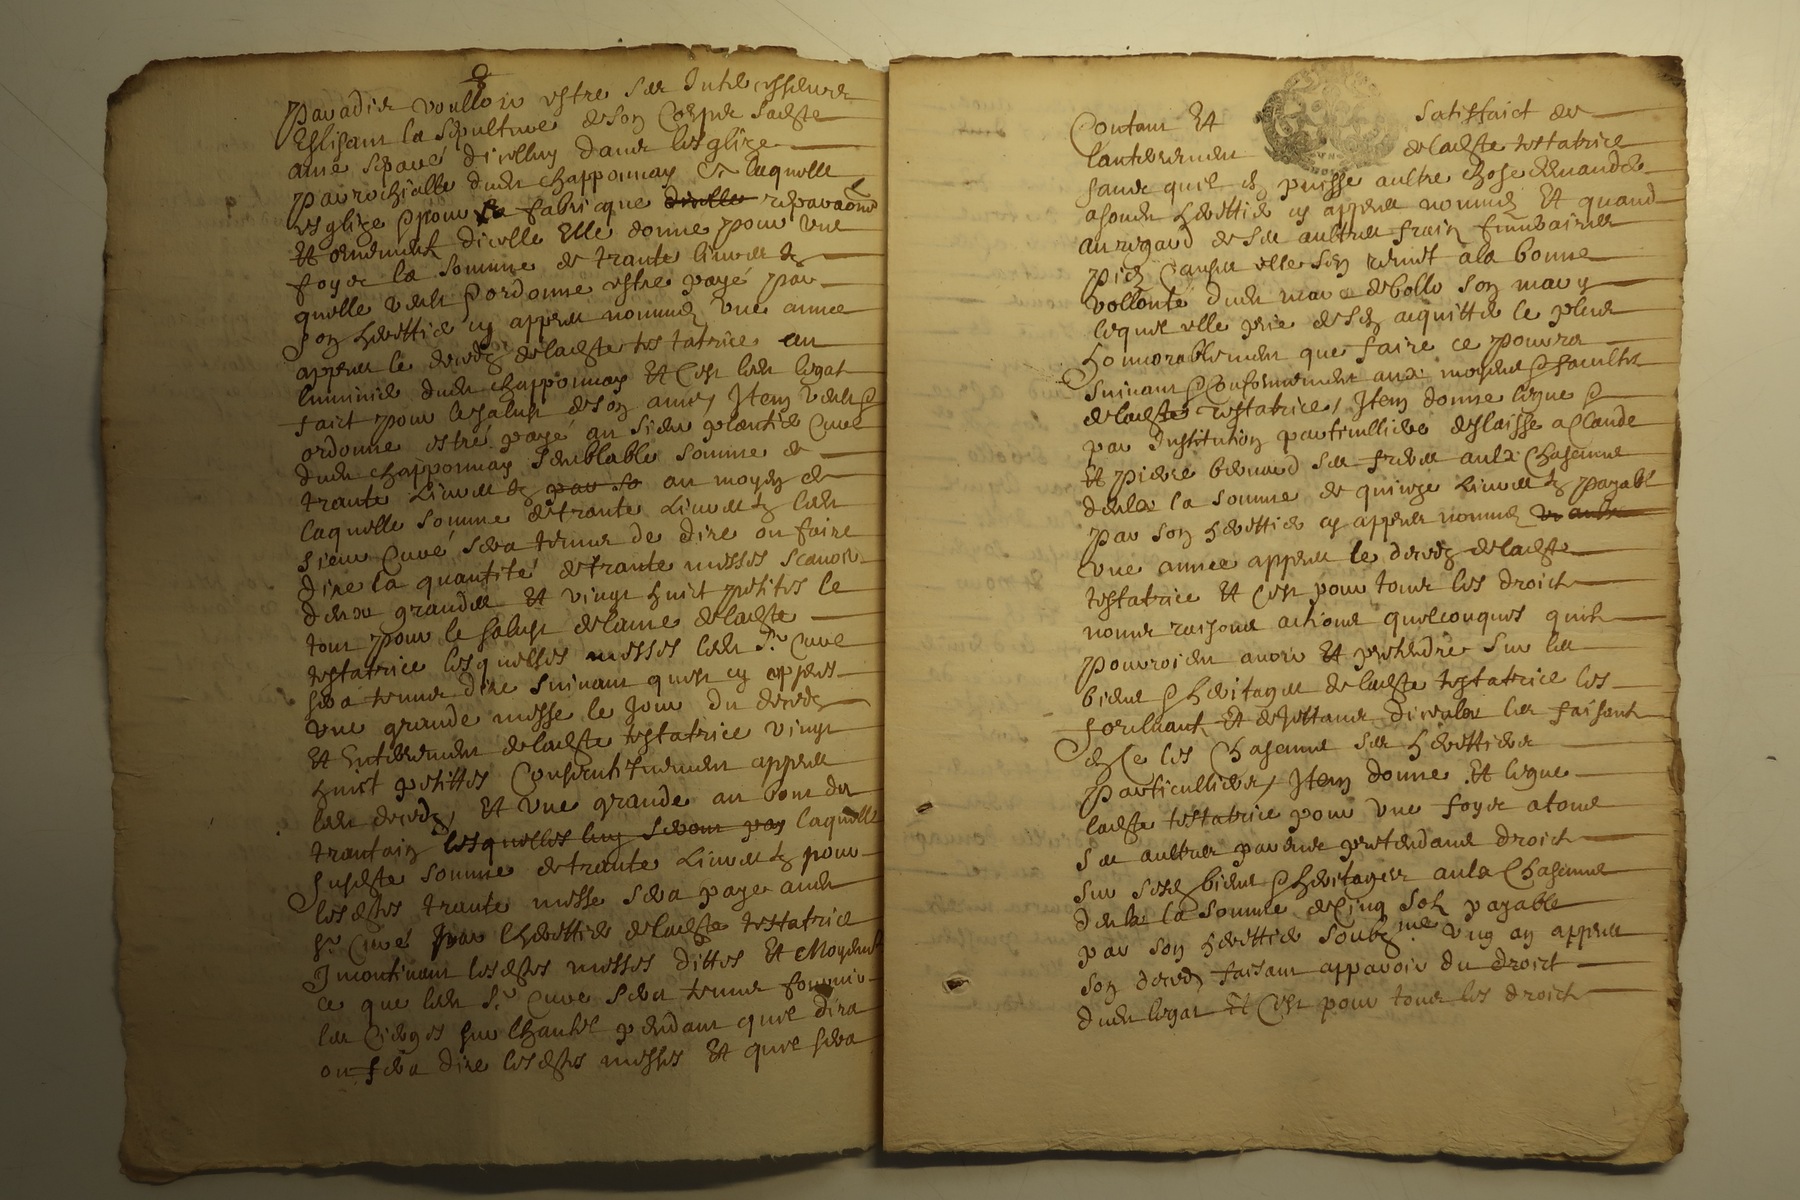 paradis voulloir estre ses Intercesseurs
Eslisant la sepulture de son Corps ladte
ame separé d'icelluy dans lesglize
parrochialle dud Chapponnay A laquelle
esglize & pour la fabricque d'icelle reparaons
Et ornement d'icelle Elle donne pour une
foys la somme de trante livres tz
quelle veult & ordonne estre payé par
son herettier cy appres nommé une annee
appres le decedz de ladte testatrice au
luminier dud Chapponnay Et C'est led legat
faict pour le salut de son ame, Item veult &
ordonne estre payé au sieur Curé
dud Chapponnay semblable somme de
trante Livres tz par so au moyen de
laquelle somme de trante Livres tz led
sieur Curé sera tenu de dire ou faire
dire la quantité de trante messes scavoir
deux grandes Et vingt huict petites le
tout pour le salut de l'ame de ladte
testatrice lesquelles messes led Sr Curé
sera tenu dire suivant quest cy appres
une grande messe le Jour du decedz
Et Enterrement de ladte testatrice vingt
huict petittes Consecutivement appres
led decedz, Et une grande au bout du
trantain lesquelles luy seront pay laquelle
susdte somme de trante Livres tz pour
lesdtes trante messe sera payé aud
Sr Curé par lherettier de ladte testatrice
Incontinant lesdtes messes dittes Et Moyenant
ce que led Sr Curé sera tenu fournir
les Cierges sur lhautel pendant quil dira
ou fera dire lesdtes messes Et quil sera
Contant Et satisfaict de
lanterrement de ladte testatrice
sans quil en puisse aultre chose demander
a sond herettier cy appres nommé Et quand
au regard de ses aultres fraiz funebraires
piez Causes elle sen remet a la bonne
vollonté dud son mary
lequel elle prie de sen acquitter le plus
honnorablement que faire ce pourra
suivant & Conformement aux moyens & facultes
de ladte testatrice, Item donne legue &
par Institution particulliere deslaisse a Claude
Et pierre bernard ses freres aulx Chascung
deulx la somme de quinze Livres tz payable
par son herettier cy appres nommé
une annee appres le decedz de ladte
testatrice Et C'est pour tous les droict
noms raisons actions quelconques quilz
pourroient avoir Et prethendre sur les
biens & heritages de ladte testatrice les
forcluant Et dejettant d'iceulx les faisant
en Ce les Chascung ses herettiers
particulliers, Item donne Et legue
ladte testatrice pour une foys a tous
ses aultres parens pretendans droict
sur sesd biens & heritages aulx Chascung
deulx la somme de Cinq solz payable
par son herettier soubzné ung an appres
son decedz faisant apparoir du droict
dud legat Et C'est pour tous les droict